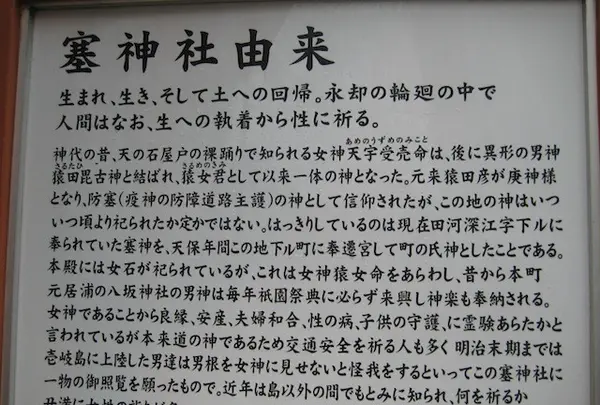 塞神社由来
生まれ、生き、そして土への回帰。永却の輪廻の中で
人間はなお、生への執着から性に祈る。
あめのうずめのみこと
神代の昔、天の石屋戸の裸踊りで知られる女神天宇受売命は、後に異形の男神
さるたひ さるめのきみ
猿田毘古神と結ばれ、猿女君として以来一体の神となった。元来猿田彦が庚神様
となり、防塞(疫神の防障道路主護)の神として信仰されたが、この地の神はいつ
いつ頃より祀られたか定かではない。はっきりしているのは現在田河深江字下ルに
奉られていた塞神を、天保年間この地下ル町に奉遷宮して町の氏神としたことである。
本殿には女石が祀られているが、これは女神猿女命をあらわし、昔から本町
元居浦の八坂神社の男神は毎年祇園祭典に必らず来興し神楽も奉納される。
女神であることから良縁、安産、夫婦和合、性の病、子供の守護、に霊験あらたかと
言われているが本来道の神であるため交通安全を祈る人も多く明治末期までは
壱岐島に上陸した男達は男根を女神に見せないと怪我をするといってこの塞神社に
一物の御照覧を願ったもので。近年は島以外の間でもとみに知られ、何を祈るか